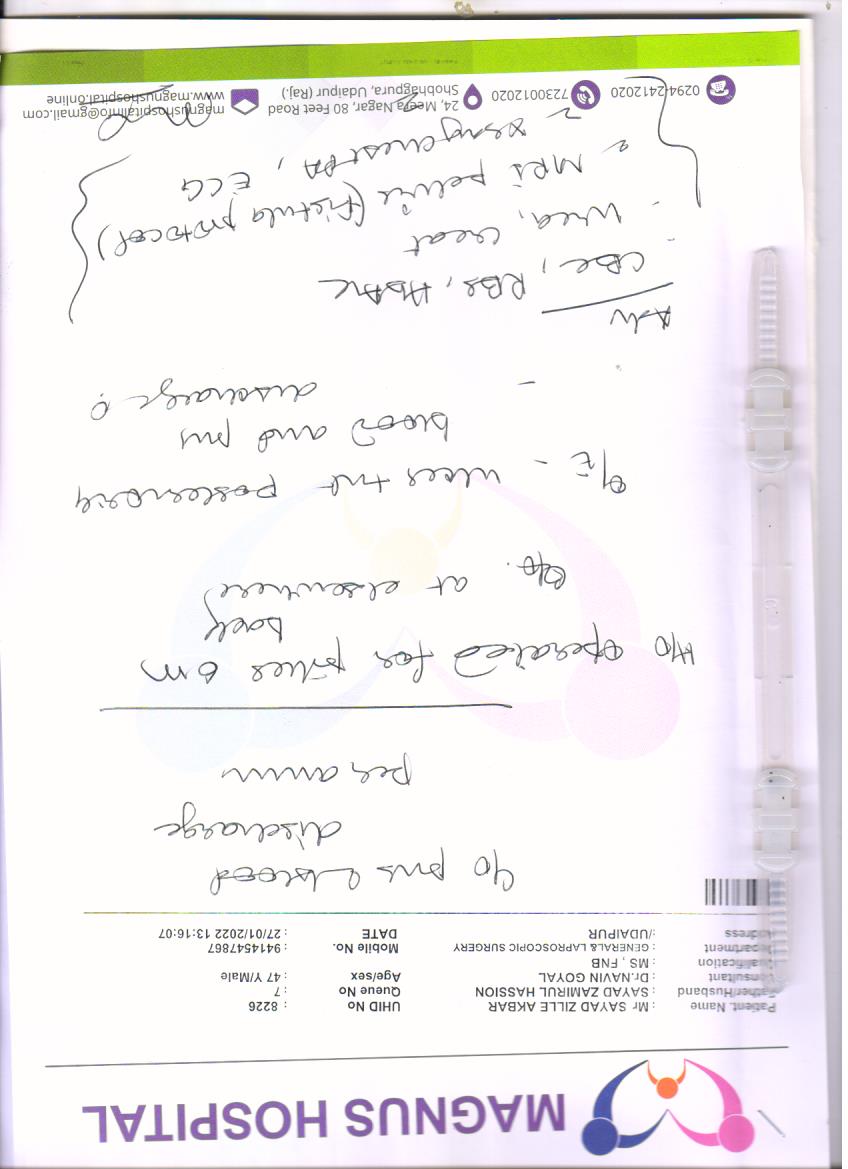 MAGNUS HOSPITAL
Patient. Name : Mr SAYAD ZILLE AKBAR UHID No : 8226
Father/Husband : SAYAD ZAMIRUL HASSION Queue No : 7
Consultant : Dr.NAVIN GOYAL Age/sex : 47 Y/Male
Qualification : MS , FNB
Department : GENERAL& LAPROSCOPIC SURGERY Mobile No. : 9414547867
Address :/UDAIPUR DATE : 27/01/2022 13:16:07
c/o pus & blood
discharge
per annum
H/o operated for piles 6m
back
at elsewhere
O/E - ulcer posteriorly
blood and pus
discharge
Adv
CBC, RBS, HbA1c
Urea, creat
MRI pelvic (fistula protocol)
Xray chest PA, ECG
0294-2412020 7230012020 24, Meera Nagar, 80 Feet Road magnushospitalinfo@gmail.com
Shobhagpura, Udaipur (Raj.) www.magnushospital.online